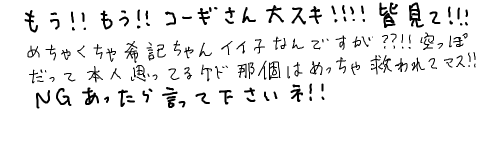 もう!! もう!! コーギさん 大スキ!!!! 皆見て!!!
めちゃくちゃ希記ちゃんイイ子なんですが??!! 空っぽ
だって本人思ってるケド那個はめっちゃ救われてマス!!
NGあったら言って下さいネ!!